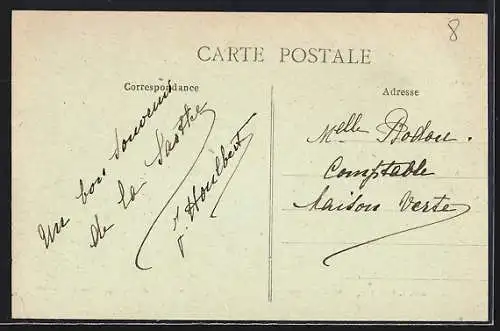 8
CARTE POSTALE
Correspondance
Un bon souvenir
de la
J. Houlbert
Adresse
Melle Bodou.
Comptable
Maison Verte